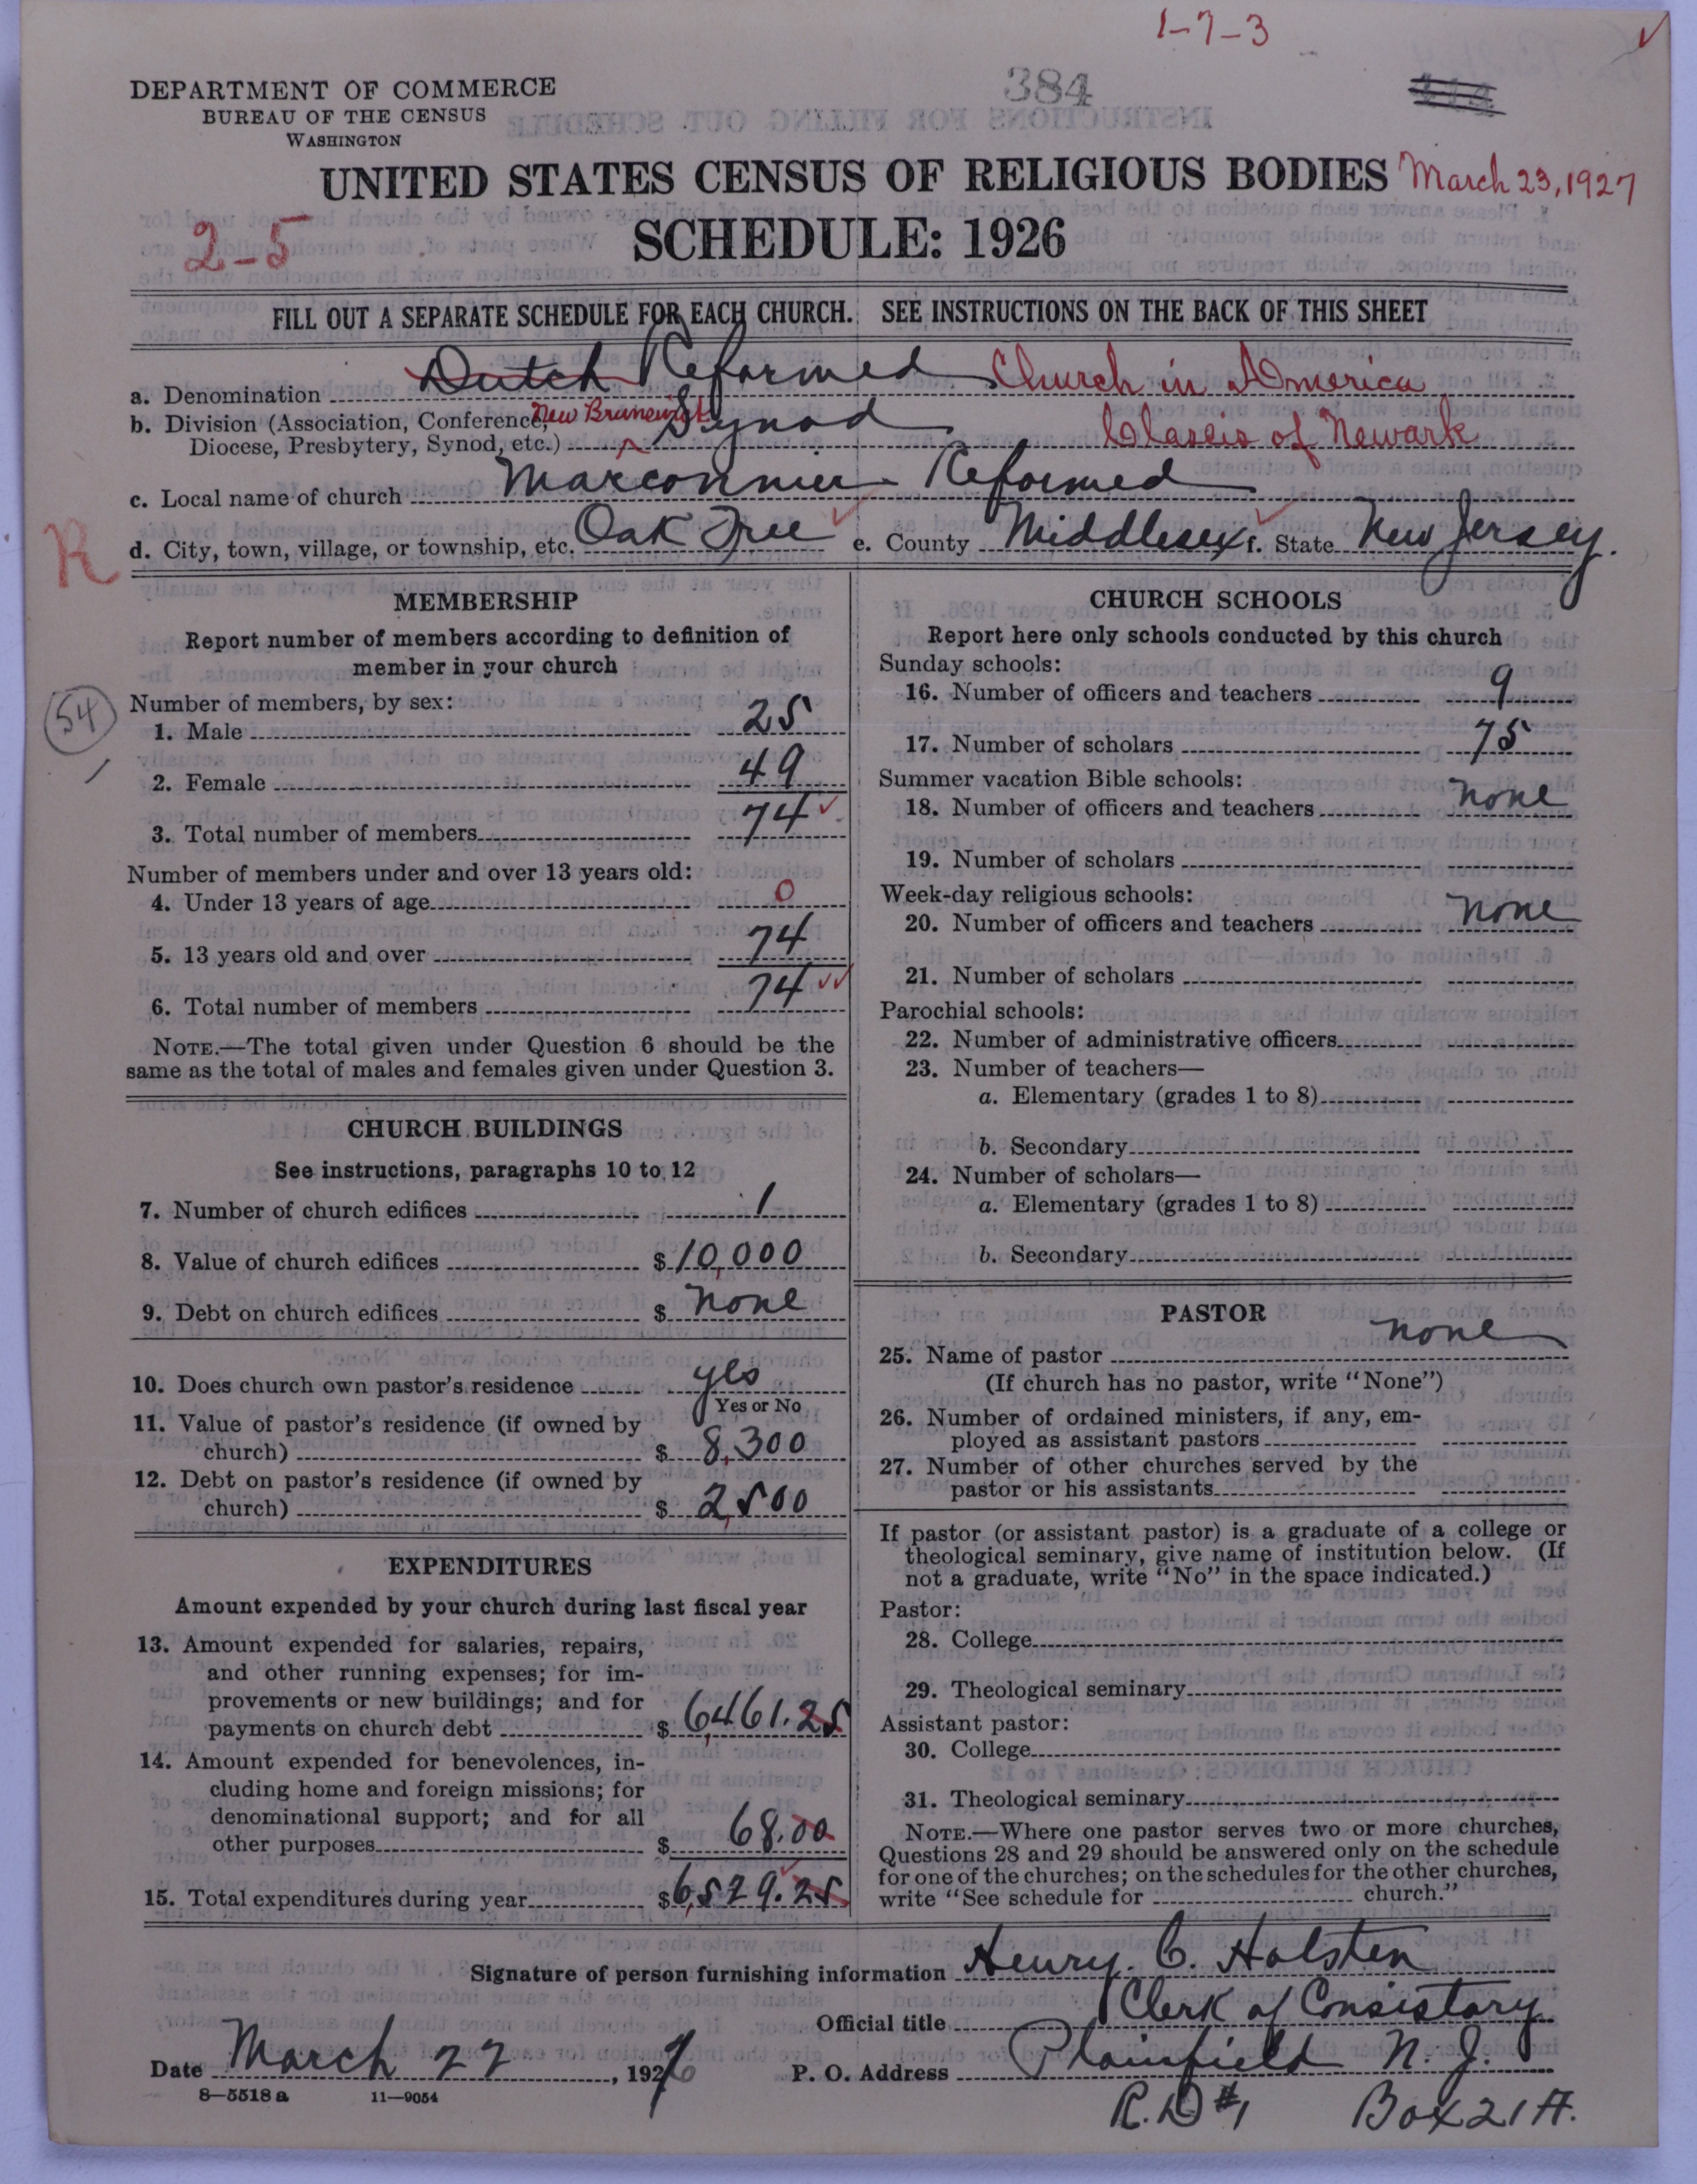 1-7-3
384
DEPARTMENT OF COMMERCE
BUREAU OF THE CENSUS
WASHINGTON
UNITED STATES CENSUS OF RELIGIOUS BODIES March 23, 1927
2-5
SCHEDULE: 1926
FILL OUT A SEPARATE SCHEDULE FOR EACH CHURCH. SEE INSTRUCTIONS ON THE BACK OF THIS SHEET
a. Denomination Dutch Reformed Church in America
b. Division (Association, Conference, New Brunswick Synod Classis of Newark
Diocese, Presbytery, Synod, etc.)
c. Local name of church Marconnier Reformed
d. City, town, village, or township, etc. Oak Tree e. County Middlesex f. State New Jersey.
R
MEMBERSHIP
Report number of members according to definition of
member in your church
54
Number of members, by sex:
1. Male 25
2. Female 49
3. Total number of members 74
Number of members under and over 13 years old:
4. Under 13 years of age 0
5. 13 years old and over 74
6. Total number of members 74
NOTE.—The total given under Question 6 should be the
same as the total of males and females given under Question 3.
CHURCH BUILDINGS
See instructions, paragraphs 10 to 12
7. Number of church edifices 1
8. Value of church edifices $ 10,000
9. Debt on church edifices $ none
10. Does church own pastor's residence yes
Yes or No
11. Value of pastor's residence (if owned by
church) $ 8,300
12. Debt on pastor's residence (if owned by
church) $ 2,500
EXPENDITURES
Amount expended by your church during last fiscal year
13. Amount expended for salaries, repairs,
and other running expenses; for im-
provements or new buildings; and for
payments on church debt $ 6,461.25
14. Amount expended for benevolences, in-
cluding home and foreign missions; for
denominational support; and for all
other purposes $ 68.00
15. Total expenditures during year $ 6,529.25
CHURCH SCHOOLS
Report here only schools conducted by this church
Sunday schools:
16. Number of officers and teachers 9
17. Number of scholars 75
Summer vacation Bible schools:
18. Number of officers and teachers none
19. Number of scholars
Week-day religious schools:
20. Number of officers and teachers none
21. Number of scholars
Parochial schools:
22. Number of administrative officers
23. Number of teachers—
a. Elementary (grades 1 to 8)
b. Secondary
24. Number of scholars—
a. Elementary (grades 1 to 8)
b. Secondary
PASTOR
25. Name of pastor none
(If church has no pastor, write "None")
26. Number of ordained ministers, if any, em-
ployed as assistant pastors
27. Number of other churches served by the
pastor or his assistants
If pastor (or assistant pastor) is a graduate of a college or
theological seminary, give name of institution below. (If
not a graduate, write "No" in the space indicated.)
Pastor:
28. College
29. Theological seminary
Assistant pastor:
30. College
31. Theological seminary
NOTE.—Where one pastor serves two or more churches,
Questions 28 and 29 should be answered only on the schedule
for one of the churches; on the schedules for the other churches,
write "See schedule for church."
Signature of person furnishing information Henry. C. Holsten
Official title Clerk of Consistory
Date March 22, 1927 P. O. Address Plainfield N. J.
8-5518 a 11-9054
R.D #1 Box 21 A.